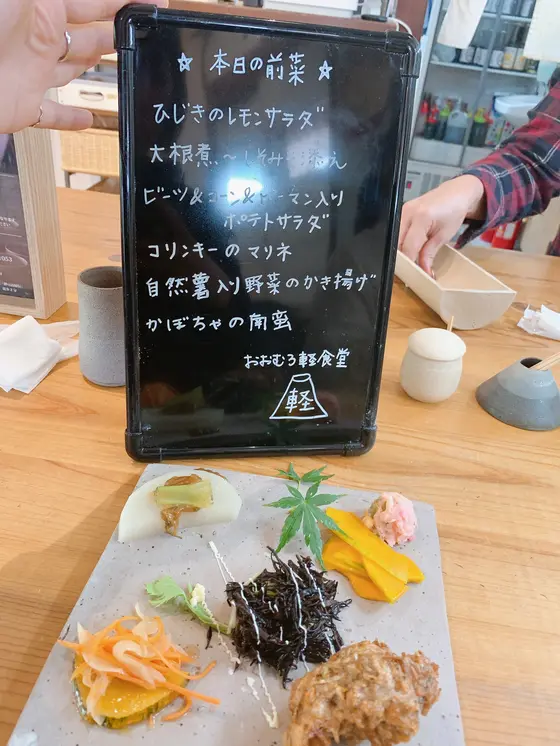 ☆ 本日の前菜 ☆
ひじきのレモンサラダ
大根煮 〜しそみそ添え
ビーツ&コーン&ピーマン入り
ポテトサラダ
コリンキーのマリネ
自然薯入り野菜のかき揚げ
かぼちゃの南蛮
おおむろ軽食堂
軽